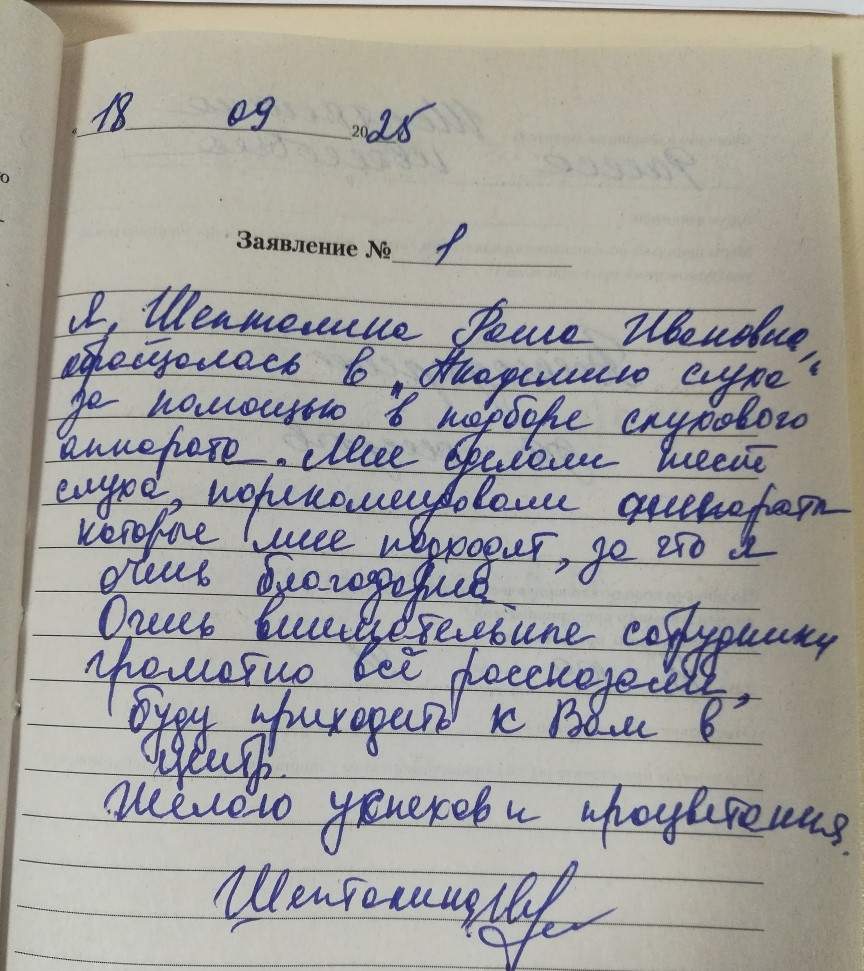 18 09 2025
Заявление № 1
Я, Шепталина Раиса Ивановна,
обращалась в „Академию слуха“
за помощью в подборе слухового
аппарата. Мне сделали тест
слуха, порекомендовали аппараты
которые мне подходят, за что я
очень благодарна
Очень внимательные сотрудники
грамотно всё рассказали,
буду приходить к Вам в
центр.
Желаю успехов и процветания.
Шепталина